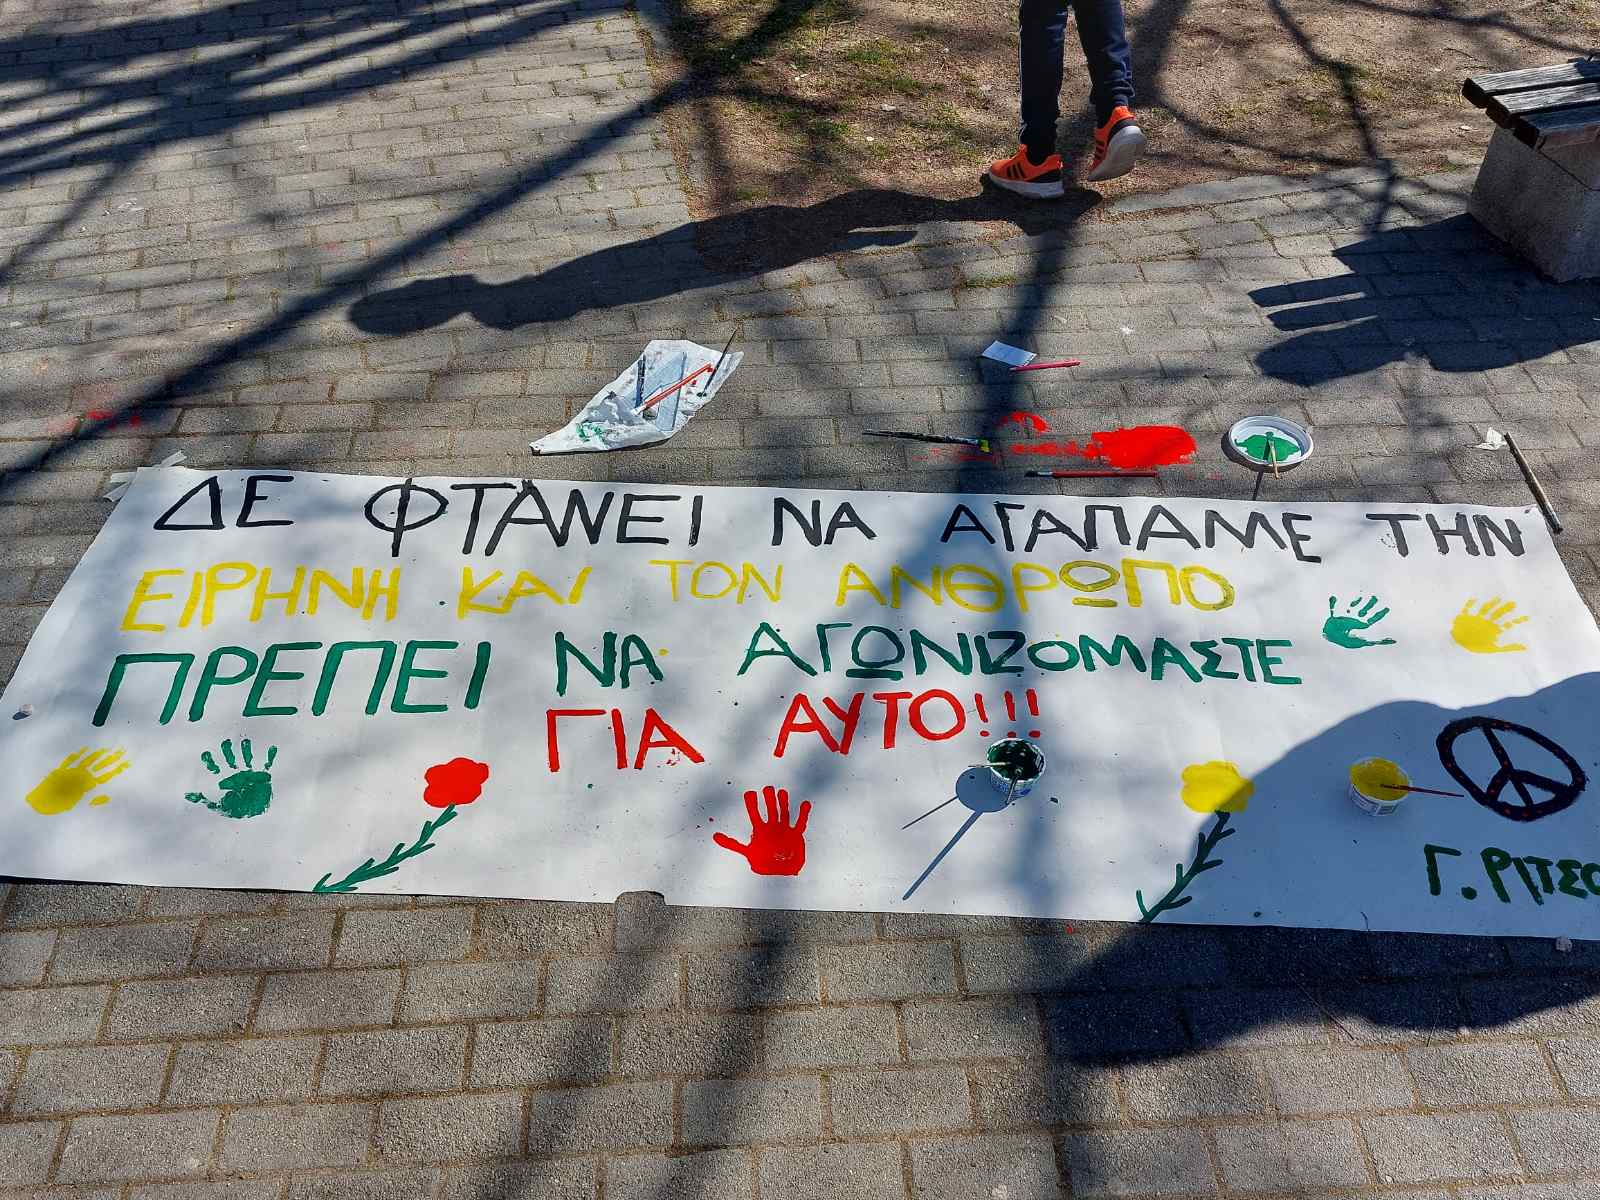 ΔΕ ΦΤΑΝΕΙ ΝΑ ΑΓΑΠΑΜΕ ΤΗΝ
ΕΙΡΗΝΗ ΚΑΙ ΤΟΝ ΑΝΘΡΩΠΟ
ΠΡΕΠΕΙ ΝΑ ΑΓΩΝΙΖΟΜΑΣΤΕ
ΓΙΑ ΑΥΤΟ!!!
Γ. ΡΙΤΣΟ